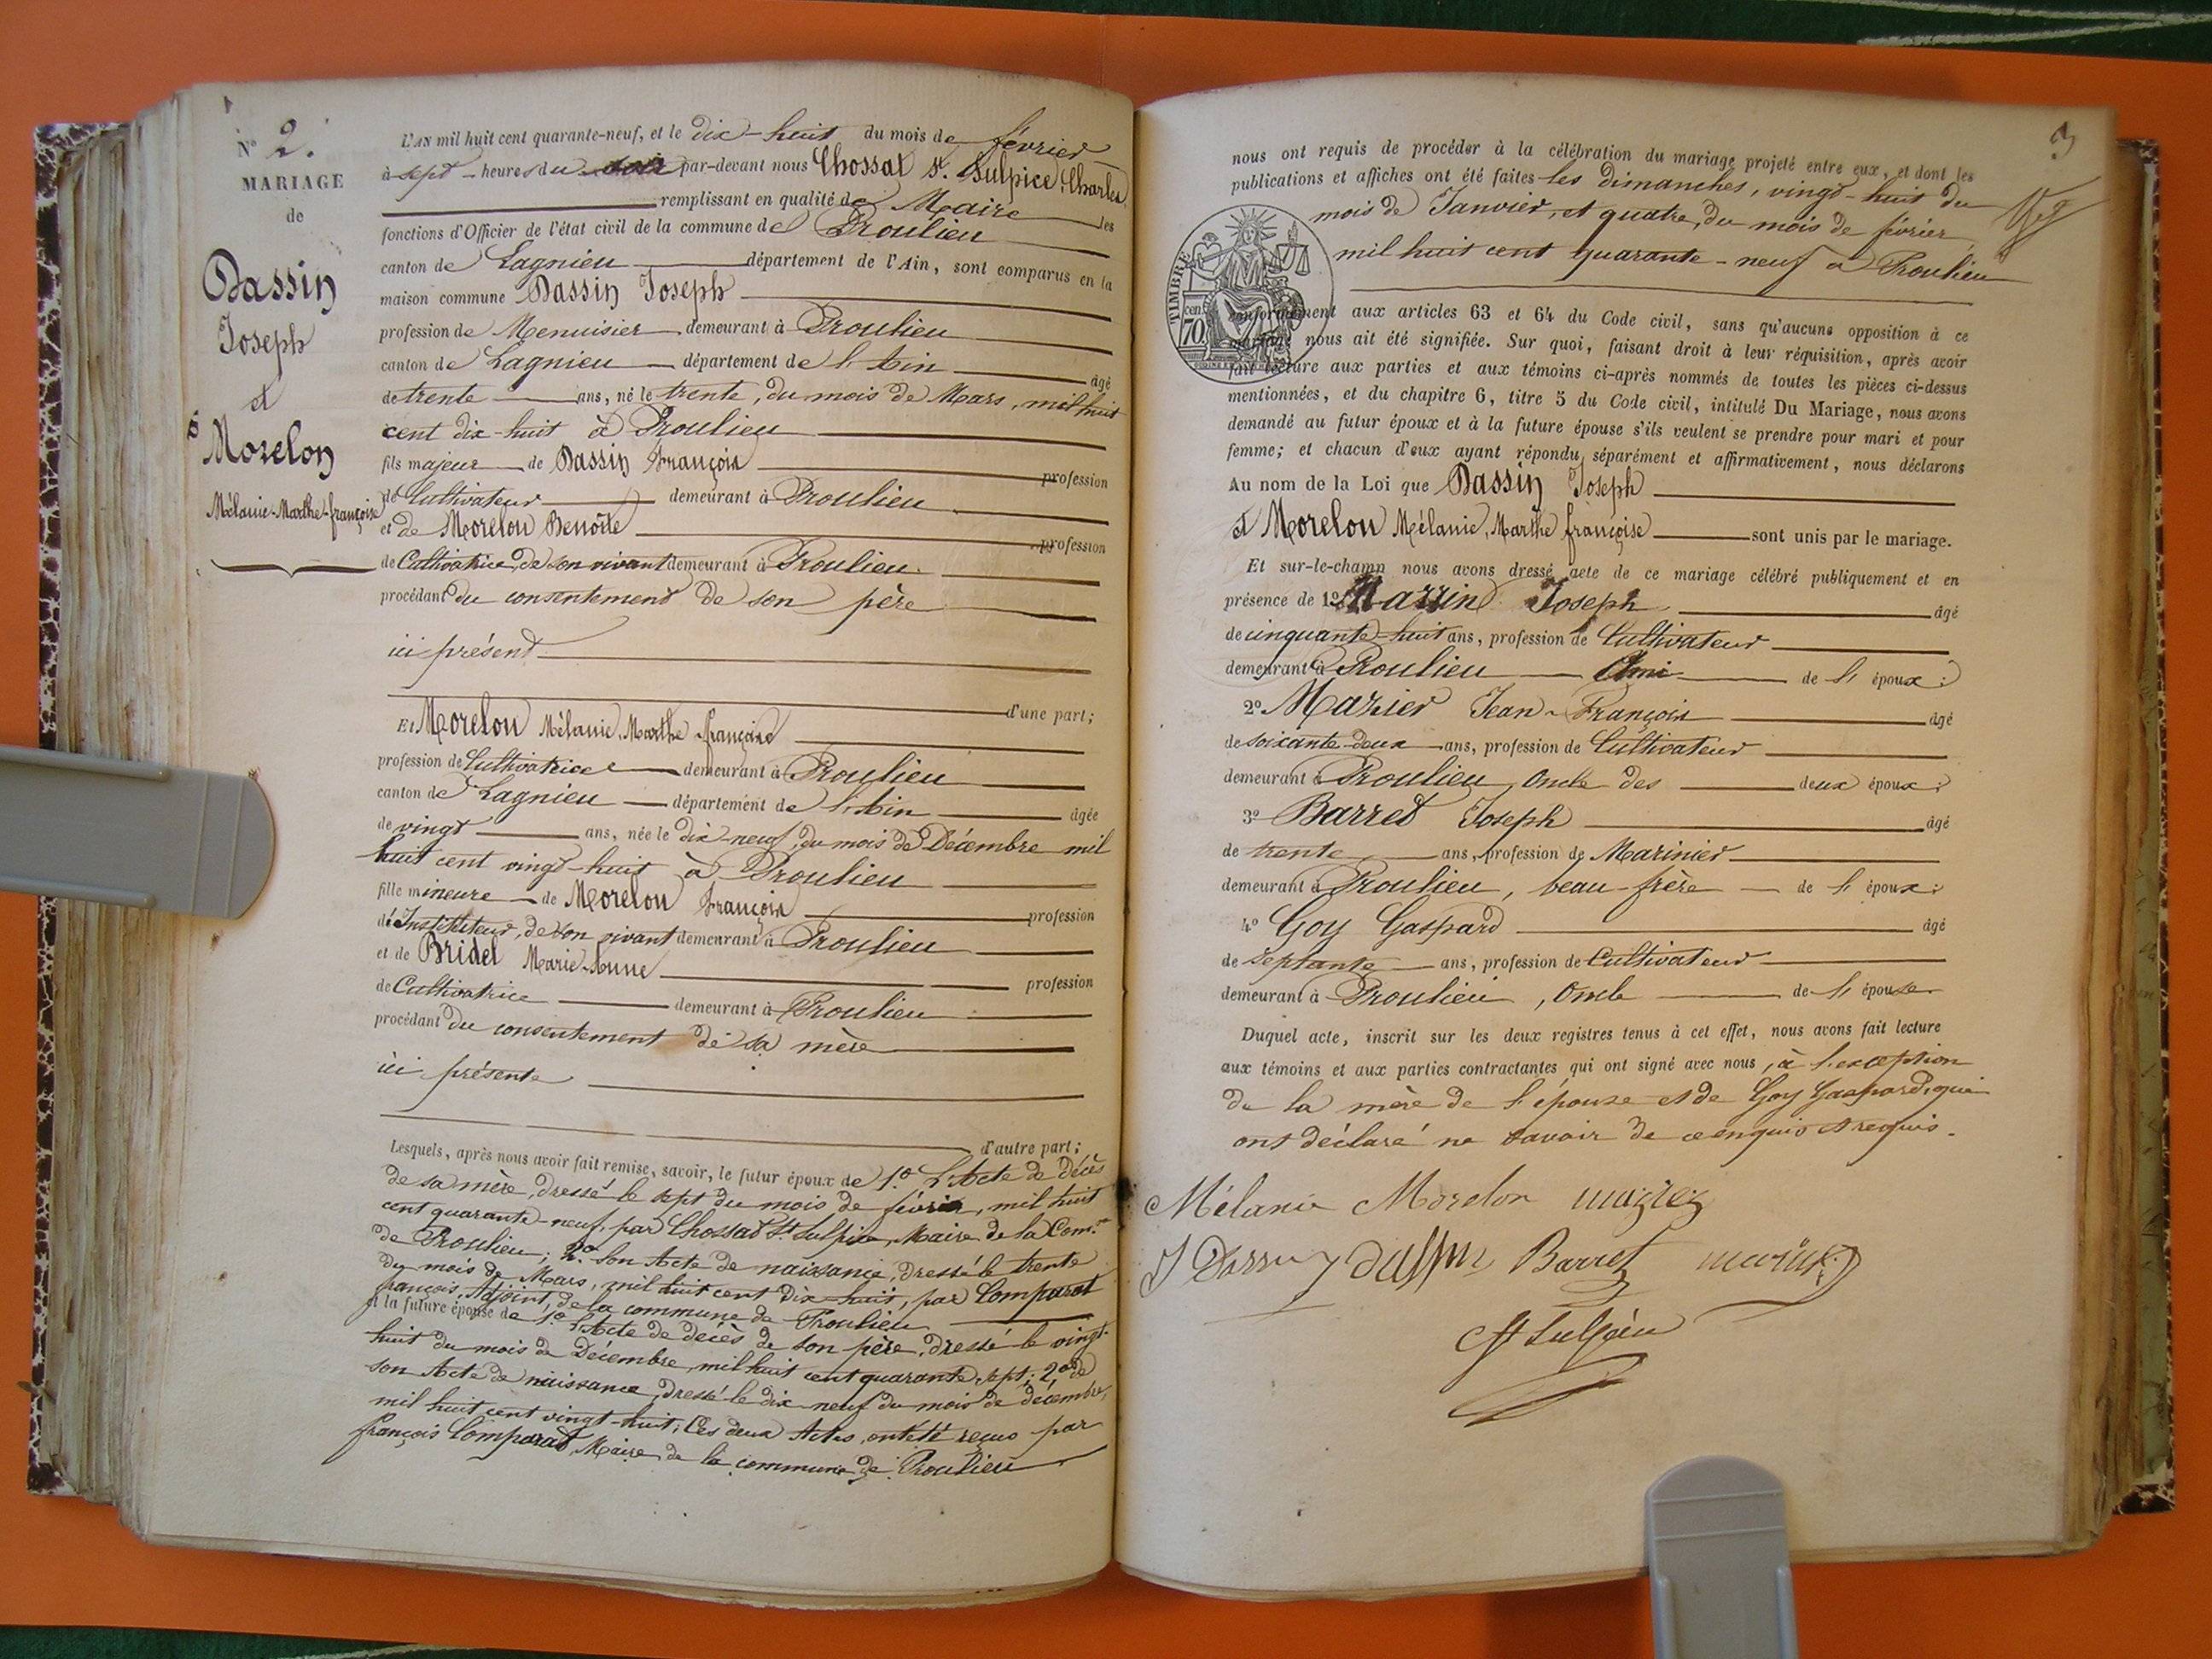 N° 2.
MARIAGE
de
Dassin
Joseph
et
Morelon
Mélanie-Marthe-françoise
L'AN mil huit cent quarante-neuf, et le dix-huit du mois de février
à sept heures du soir par-devant nous Chossat St. Sulpice, Charles
remplissant en qualité de Maire les
fonctions d'Officier de l'état civil de la commune de Proulieu
canton de Lagnieu département de l'Ain, sont comparus en la
maison commune Dassin Joseph
profession de Menuisier demeurant à Proulieu
canton de Lagnieu département de l'Ain âgé
de trente ans, né le trente, du mois de Mars, mil huit
cent dix-huit à Proulieu
fils majeur de Dassin François profession
de Cultivateur demeurant à Proulieu
et de Morelon Benoite profession
de Cultivatrice, de son vivant demeurant à Proulieu
procédant du consentement de son père
ici présent
d'une part;
Et Morelon Mélanie, Marthe françoise
profession de Cultivatrice demeurant à Proulieu
canton de Lagnieu département de l'Ain âgée
de vingt ans, née le dix-neuf, du mois de Décembre mil
huit cent vingt-huit à Proulieu
fille mineure de Morelon François profession
de Instituteur, de son vivant demeurant à Proulieu
et de Bridel Marie-Anne profession
de Cultivatrice demeurant à Proulieu
procédant du consentement de sa mère
ici présente
d'autre part;
Lesquels, après nous avoir fait remise, savoir, le futur époux de 1.° L'Acte de décès
de sa mère, dressé le sept du mois de février, mil huit
cent quarante-neuf, par Chossat St Sulpice, Maire de la Com.ne
de Proulieu; 2.° Son Acte de naissance, dressé le trente
du mois de Mars, mil huit cent dix-huit, par Comparat
françois, Adjoint, de la commune de Proulieu
et la future épouse de 1.° L'Acte de décès de son père, dressé le vingt-
huit du mois de Décembre, mil huit cent quarante-sept; 2.° de
son Acte de naissance, dressé le dix-neuf du mois de décembre,
mil huit cent vingt-huit; Ces deux Actes, ont été reçus par
françois Comparat, Maire de la commune de Proulieu
3
nous ont requis de procéder à la célébration du mariage projeté entre eux, et dont les
publications et affiches ont été faites les dimanches, vingt-huit du
mois de Janvier, et quatre, du mois de février
mil huit cent quarante-neuf à Proulieu
TIMBRE
cen.
70
conformément aux articles 63 et 64 du Code civil, sans qu'aucune opposition à ce
mariage nous ait été signifiée. Sur quoi, faisant droit à leur réquisition, après avoir
fait lecture aux parties et aux témoins ci-après nommés de toutes les pièces ci-dessus
mentionnées, et du chapitre 6, titre 5 du Code civil, intitulé Du Mariage, nous avons
demandé au futur époux et à la future épouse s'ils veulent se prendre pour mari et pour
femme; et chacun d'eux ayant répondu séparément et affirmativement, nous déclarons
Au nom de la Loi que Dassin Joseph
et Morelon Mélanie, Marthe françoise sont unis par le mariage.
Et sur-le-champ nous avons dressé acte de ce mariage célébré publiquement et en
présence de 1° Joseph âgé
de cinquante-huit ans, profession de Cultivateur
demeurant à Proulieu Ami de l'époux;
2° Mazier Jean-François âgé
de soixante-deux ans, profession de Cultivateur
demeurant à Proulieu Oncle des deux époux;
3° Barret Joseph âgé
de trente ans, profession de Marinier
demeurant à Proulieu, beau-frère de l'époux;
4° Goy Gaspard âgé
de septante ans, profession de Cultivateur
demeurant à Proulieu, Oncle de l'épouse
Duquel acte, inscrit sur les deux registres tenus à cet effet, nous avons fait lecture
aux témoins et aux parties contractantes qui ont signé avec nous, à l'exception
de la mère de l'épouse et de Goy Gaspard, qui
ont déclaré ne savoir de ce enquis et requis.
Mélanie Morelon mazier
J Dassin dassin Barret
St Sulpice